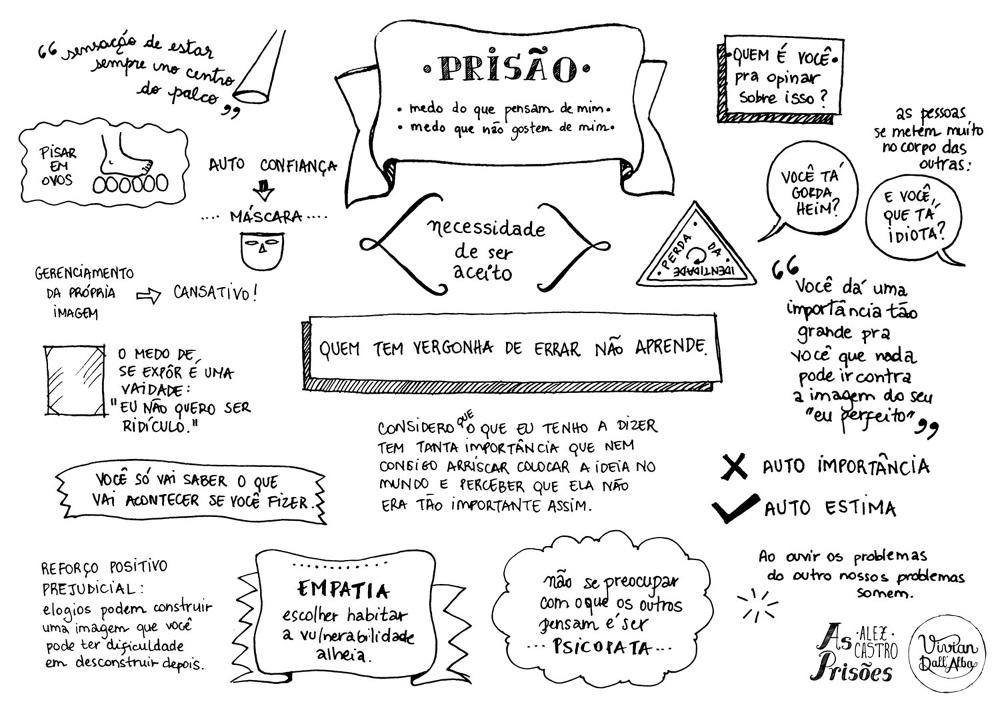 "sensação de estar
sempre no centro
do palco"
• PRISÃO •
• medo do que pensam de mim •
• medo que não gostem de mim •
• QUEM É VOCÊ •
pra opinar
sobre isso?
as pessoas
se metem muito
no corpo das
outras:
VOCÊ TÁ
GORDA
HEIM?
E VOCÊ,
QUE TÁ
IDIOTA?
PISAR
EM
OVOS
AUTO CONFIANÇA
.... MÁSCARA ....
necessidade
de ser
aceito
PERDA • DA • IDENTIDADE •
GERENCIAMENTO
DA PRÓPRIA
IMAGEM
CANSATIVO!
QUEM TEM VERGONHA DE ERRAR NÃO APRENDE.
"você dá uma
importância tão
grande pra
você que nada
pode ir contra
a imagem do seu
"eu perfeito""
O MEDO DE
SE EXPÔR É UMA
VAIDADE:
"EU NÃO QUERO SER
RIDÍCULO."
CONSIDERO QUE O QUE EU TENHO A DIZER
TEM TANTA IMPORTÂNCIA QUE NEM
CONSIGO ARRISCAR COLOCAR A IDEIA NO
MUNDO E PERCEBER QUE ELA NÃO
ERA TÃO IMPORTANTE ASSIM.
VOCÊ SÓ VAI SABER O QUE
VAI ACONTECER SE VOCÊ FIZER.
AUTO IMPORTÂNCIA
AUTO ESTIMA
REFORÇO POSITIVO
PREJUDICIAL:
elogios podem construir
uma imagem que você
pode ter dificuldade
em desconstruir depois.
EMPATIA
escolher habitar
a vulnerabilidade
alheia.
não se preocupar
com o que os outros
pensam é ser
... PSICOPATA ...
Ao ouvir os problemas
do outro nossos problemas
somem.
As Prisões
• ALEX •
CASTRO
Vivian
Dall'Alba